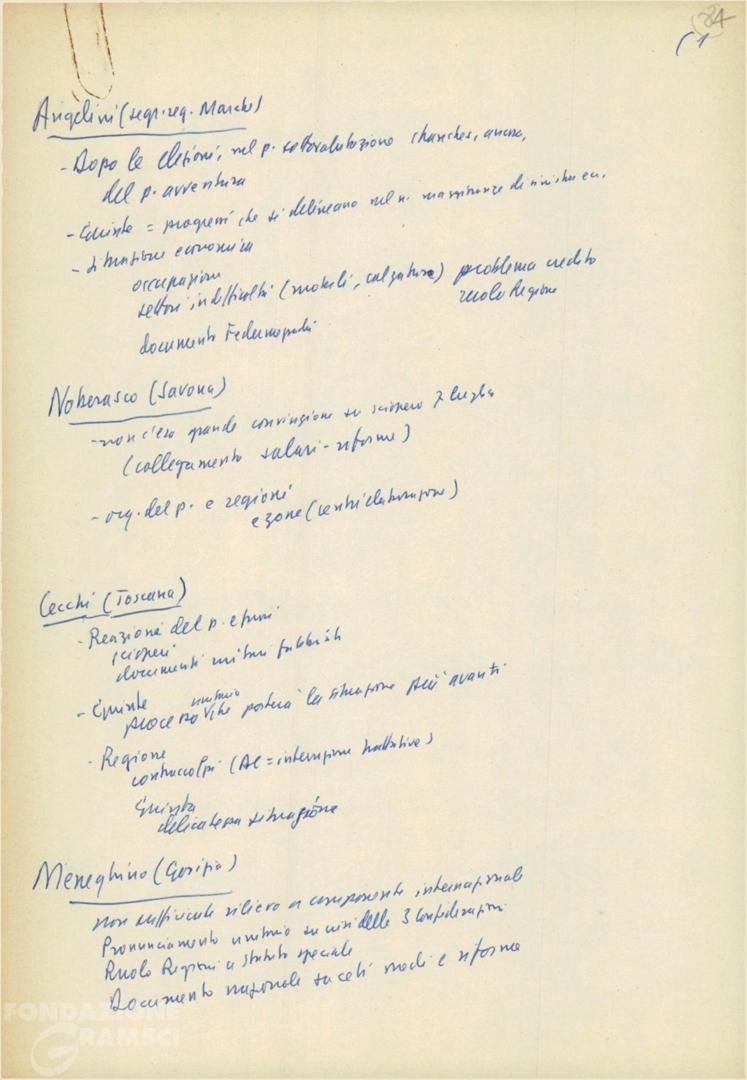 84
(1
Angelini (segr. reg. Marche)
- Dopo le elezioni, nel p. sottovalutazione ancora,
del p. avventura
- Giunte = progressi che si delineano nel n. maggioranze di sinistra
- Situazione economica
occupazione
settori in difficoltà (mobili, calzature) problema credito
ruolo Regione
documento
Noberasco (Savona)
- non c'era grande convinzione su sciopero 7 luglio
(collegamento salari - riforme)
- org. del p. e regioni
e zone (centri elaborazione)
Cecchi (Toscana)
- Reazione del p. e fuori
scioperi
documenti unitari fabbriche
- Giunte
unitario
processo che porterà la situazione più avanti
- Regione
contraccolpi ( = interruzione trattative)
Giunta
delicatezza situazione
Meneghino (Gorizia)
non sufficiente rilievo a componente internazionale
Pronunciamento unitario su crisi delle 3 Confederazioni
Ruolo Regioni a statuto speciale
Documento nazionale su ceti medi e riforme
FONDAZIONE
GRAMSCI